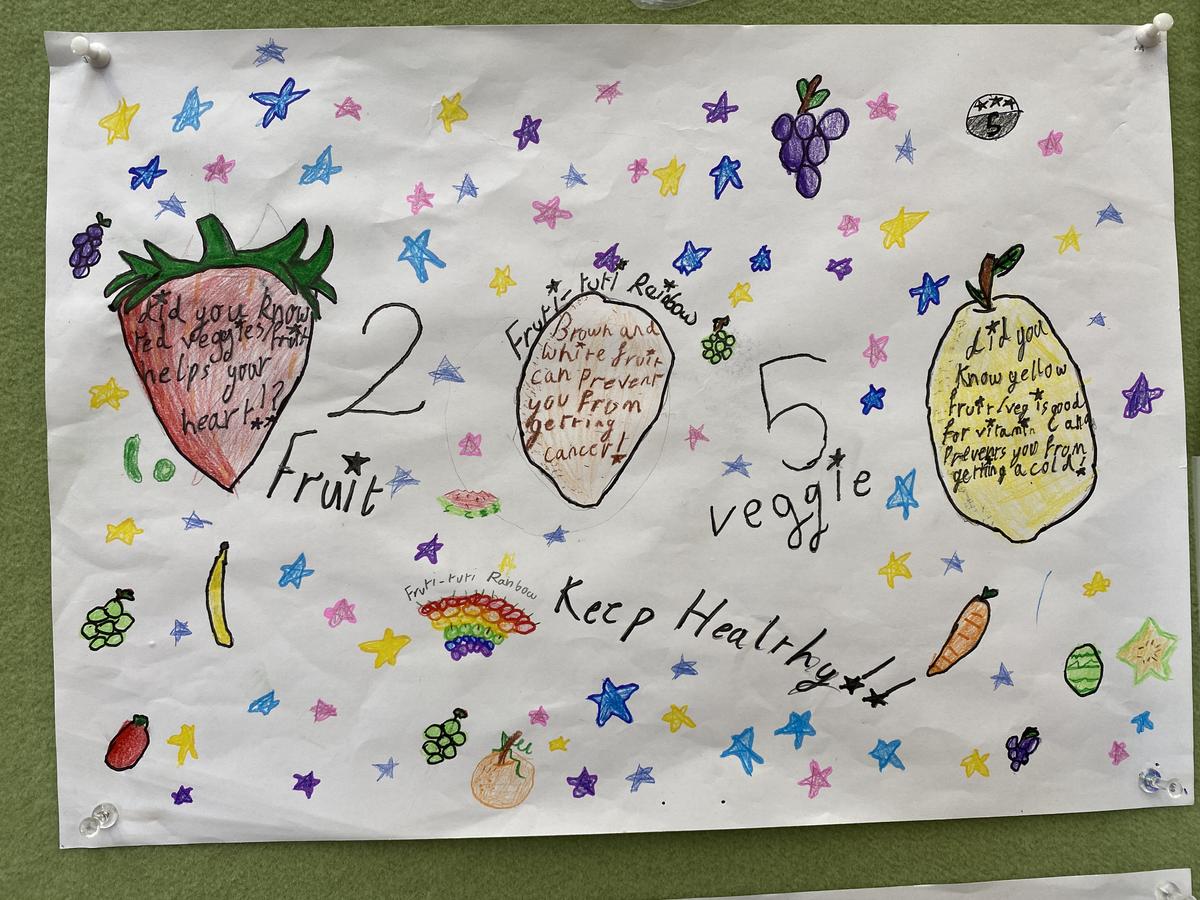 did you know
red veggies/fruit
helps your
heart!?
2
Fruit
Fruti-tuti Rainbow
Brown and
white fruit
can prevent
you from
getting
cancer!
5
veggie
5
did you
know yellow
fruit/veg is good
for vitamin C and
Prevents you from
getting a cold!
Fruti-tuti Ranbow
Keep Healthy!!